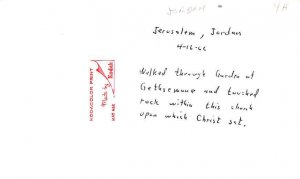 JORDAN
Jerusalem, Jordan
4-16-66
Walked through Garden of
Gethsemane and touched
rock within this church
upon which Christ sat.
KODACOLOR PRINT
Made by Kodak